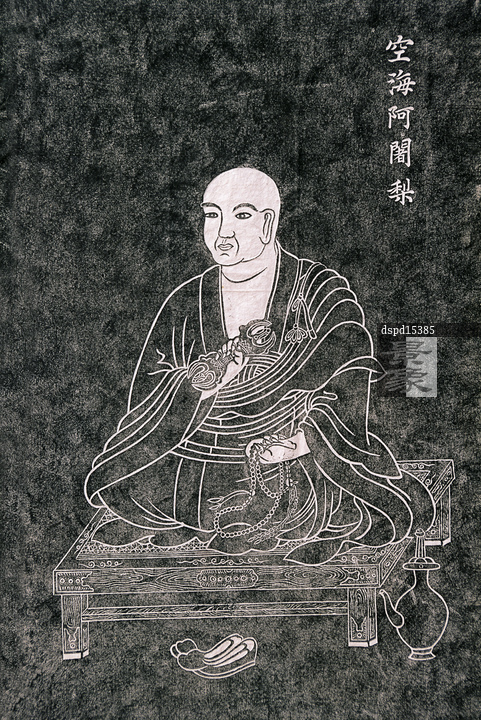 空海阿闍梨
dspd15385